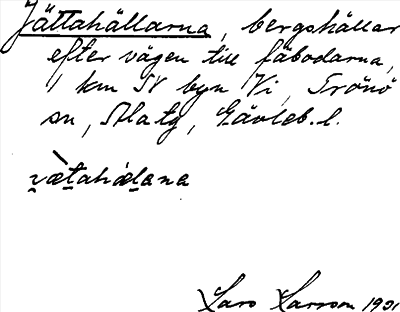 Jättahällarna, bergshällar
efter vägen till fäbodarna,
1 km N byn Vi, Trönö
sn, Alatg, Gävleb. l.
vætahælana
Lars Larsson 1931